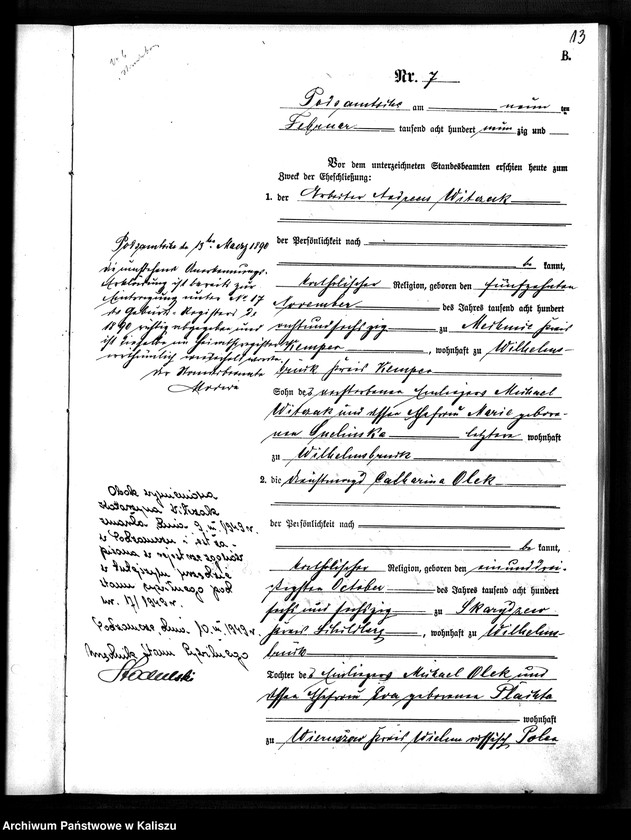 13
B.
Nr. 7
Podzamtsche am neun ten
Februar tausend acht hundert neun zig und
Vor dem unterzeichneten Standesbeamten erschien heute zum
Zweck der Eheschließung:
1. der Arbeiter Andreas Witzak
der Persönlichkeit nach
be kannt,
katholischer Religion, geboren den fünfzehnten
November des Jahres tausend acht hundert
sechzig zu Kreis
Kempen, wohnhaft zu Wilhelms-
bruck Kreis Kempen
Sohn des verstorbenen Einliegers Michael
Witzak und dessen Ehefrau Marie gebore-
nen letztere wohnhaft
zu Wilhelmsbruck
2. die Dienstmagd Catharina Olek
der Persönlichkeit nach
be kannt,
katholischer Religion, geboren den einunddrei-
ßigsten October des Jahres tausend acht hundert
sechs und sechszig zu Skarydzew
Kreis Schildberg, wohnhaft zu Wilhelms-
bruck
Tochter des Einliegers Michael Olek und
dessen Ehefrau Eva geborenen Plachta
wohnhaft
zu Wieruszow Kreis Wielun russisch Polen
Podzamtsche den 13ten Maerz 1890
Eintragung unter No. 17
des Geburts-Registers
1890 richtig abgegeben und
Der Standesbeamte
Obok wymieniona
Katarzyna Witzak
zmarła dnia 9. 1949 r.
w Podzamczu i jest za-
pisana w rejestrze zgonów
w tutejszym urzędzie
stanu cywilnego pod
nr. 17/1949 r.
Podzamcze, dnia 10. 1949 r.
Urzędnik Stanu Cywilnego
Archiwum Państwowe w Kaliszu